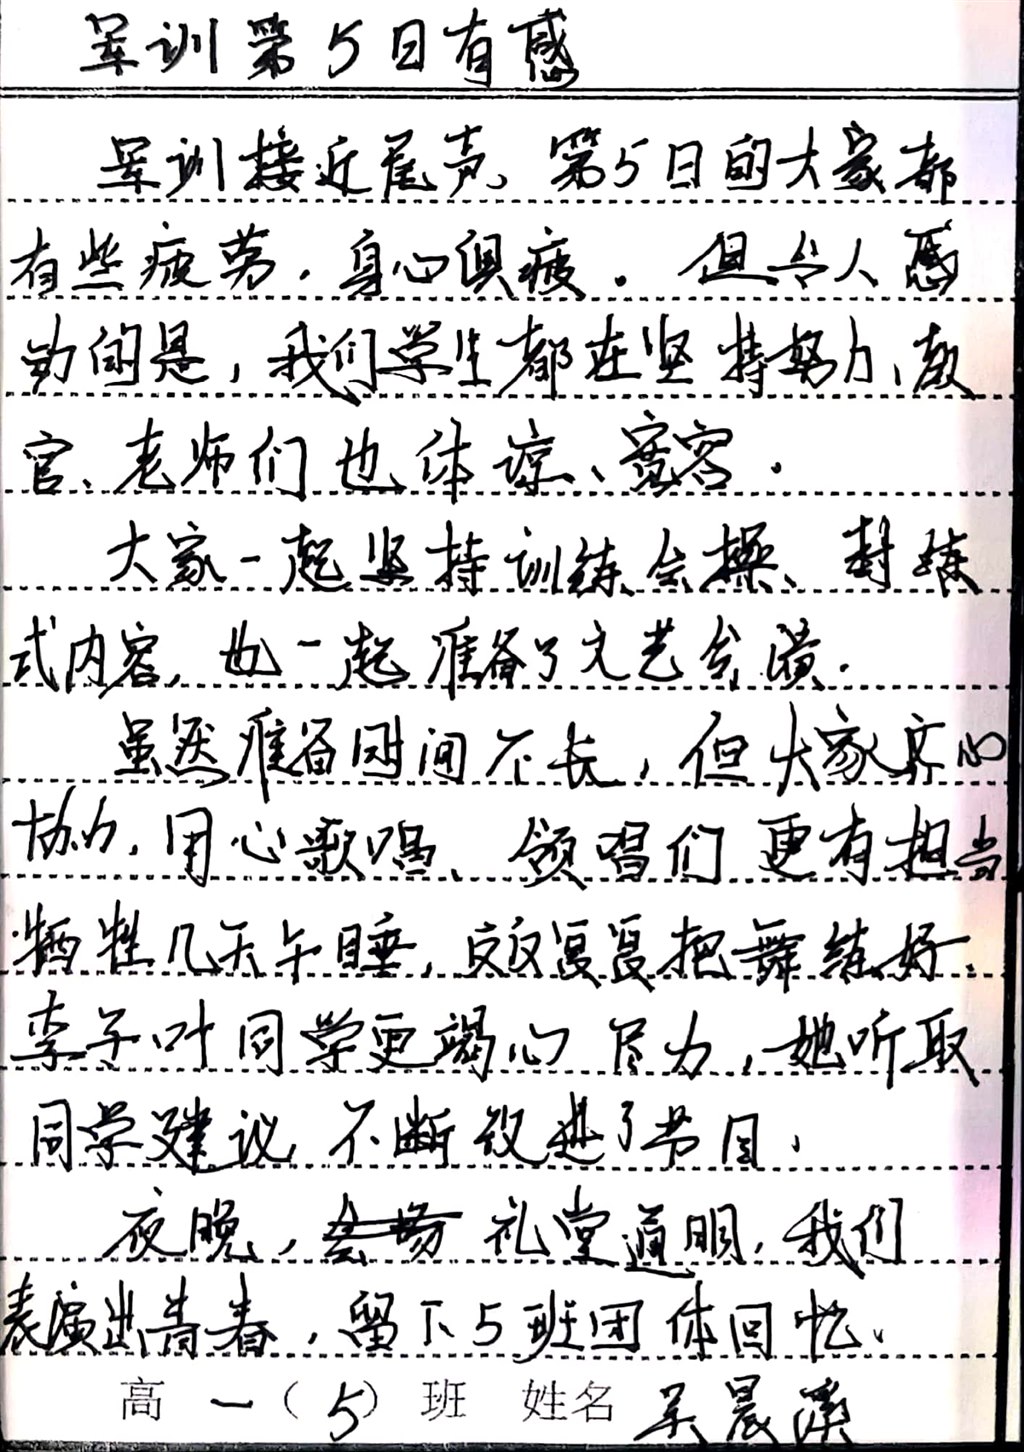 军训第5日有感
军训接近尾声、第5日的大家都
有些疲劳，身心俱疲。但令人感
动的是，我们学生都在坚持努力、教
官、老师们也体谅、宽容。
大家一起坚持训练会操、封
式内容，也一起准备了文艺会演。
虽然准备时间不长，但大家齐心
协力，用心歌唱、领唱们更有担当
牺牲几天午睡，反反复复把舞练好、
李子叶同学更竭心尽力，她听取
同学建议，不断改进了节目。
夜晚，礼堂通明，我们
表演出青春，留下5班团体回忆。
高一（5）班 姓名 吴晨